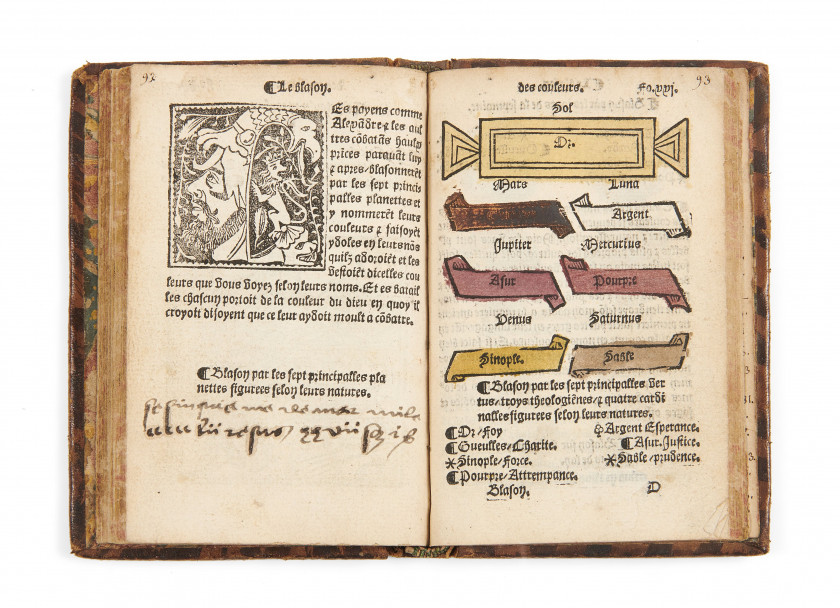 92
¶Le blason.
Es payens comme
Alexādre ⁊ les aul
tres cōbatās haulx
prīces parauāt luy
⁊ apres/blasonnerēt
par les sept princi
palles planettes et
y nommerēt leurs
couleurs ⁊ faisoyēt
ydoles en leurs nōs
quilz adoroiēt et les
vestoiēt dicelles cou
leurs que vous voyez selon leurs noms. Et es batail
les chascun portoit de la couleur du dieu en quoy il
croyoit disoyent que ce leur aydoit moult a cōbatre.
¶Blason par les sept principalles pla
nettes figurees selon leurs natures.
93
des couleurs. Fo.xxj.
Sol
Or.
Mars Luna
Argent
Jupiter Mercurius
Asur Pourpre
Venus Saturnus
Sinople. Sable
¶Blason par les sept principalles ver
tus/troys theologiēnes/⁊ quatre cardi
nalles figurees selon leurs natures.
¶Or/Foy Argent Esperance.
¶Gueulles/Charite. ¶Asur.Justice.
*Sinople/Force. *Sable/prudence.
¶Pourpre/Attrempance.
Blason. D